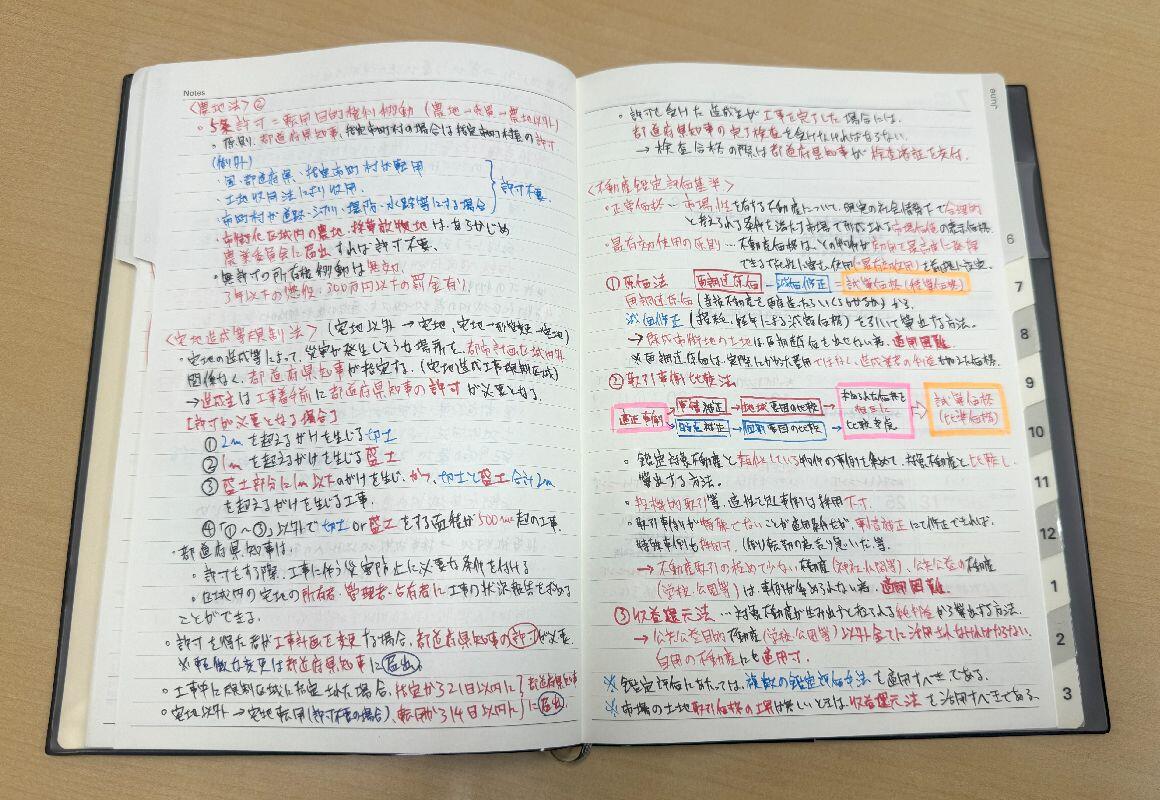 Notes
<農地法>②
・5条許可=転用目的権利移動 (農地→売買→農地以外)
・原則、都道府県知事、指定市町村の場合は指定市町村の許可
(例外)
・国、都道府県、指定市町村が転用
・土地収用法により収用。
・市町村が道路・河川・堤防・水路等にする場合
許可不要
・市街化区域内の農地・採草放牧地はあらかじめ
農業委員会に届出すれば許可不要。
・無許可の所有権移動は無効。
3年以下の懲役・300万円以下の罰金有り
<宅地造成等規制法> (宅地以外→宅地、宅地→形質変更→宅地)
・宅地の造成等によって、災害が発生しそうな場所を、都市計画区域内外
関係なく、都道府県知事が指定する。(宅地造成工事規制区域)
→造成主は工事着手前に都道府県知事の許可が必要となる。
[許可が必要となる場合]
① 2mを超えるがけを生じる切土
② 1mを超えるがけを生じる盛土
③ 盛土部分に1m以下のがけを生じ、かつ、切土と盛土合計2m
を超えるがけを生じる工事。
④「①~③」以外で切土or盛土をする面積が500㎡超の工事。
・都道府県知事は、
・許可をする際、工事に伴う災害防止に必要な条件を付ける
・区域内の宅地の所有者、管理者、占有者に工事の状況報告を求める
ことができる。
・許可を得た者が工事計画を変更する場合、都道府県知事の許可が必要
※軽微な変更は都道府県知事に届出
・工事中に規制区域に指定された場合、指定から21日以内に
・宅地以外→宅地転用(許可不要の場合)、転用から14日以内に
都道府県知事
に届出。
June
・許可を受けた造成主が工事を完了した場合には、
都道府県知事の完了検査を受けなければならない。
→検査合格の際は都道府県知事が検査済証を交付。
<不動産鑑定評価基準>
・正常価格…市場性を有する不動産について、現実の社会情勢下で合理的
と考えられる条件を満たす市場で形成される市場価値の表示価格
・最有効使用の原則…不動産価格は、その効用が最高度に発揮
できる可能性に富む使用(最有効使用)を前提に
① 原価法 再調達原価 − 減価修正 = 試算価格(積算価格)
再調達原価(当該不動産を再度造ったらいくらかかるか)から
減価修正 を引いて算出する方法。
→既成市街地の土地は再調達原価を出せない為、適用困難
② 取引事例比較法
適正事例
事情補正 → 地域要因の比較
時点修正 → 個別要因の比較
求められた価格を
相互に
比較考量
試算価格
(比準価格)
・鑑定対象不動産と類似している物件の事例を集めて、対象不動産と比較し
算出する方法。
・投機的取引等、適性を欠く事例は採用不可。
・取引事例が特殊でないことが適用条件だが、事情補正にて修正できれば、
特殊事例も採用可。(例)転勤の為売り急いだ等。
→不動産取引の極めて少ない不動産(神社仏閣等)、公共公益の不動産
(学校、公園等)は事例が集められない為、適用困難。
③ 収益還元法 …対象不動産が生み出すと考えられる純利益から算出する方法。
→公共公益目的不動産(学校、公園等)以外全てに活用されなければならない。
自用の不動産にも適用可。
※鑑定評価にあたっては、複数の鑑定評価方法を適用すべきである。
※市場の土地取引価格の上昇が著しいときは収益還元法を活用すべきである。
6
7
8
9
10
11
12
1
2
3